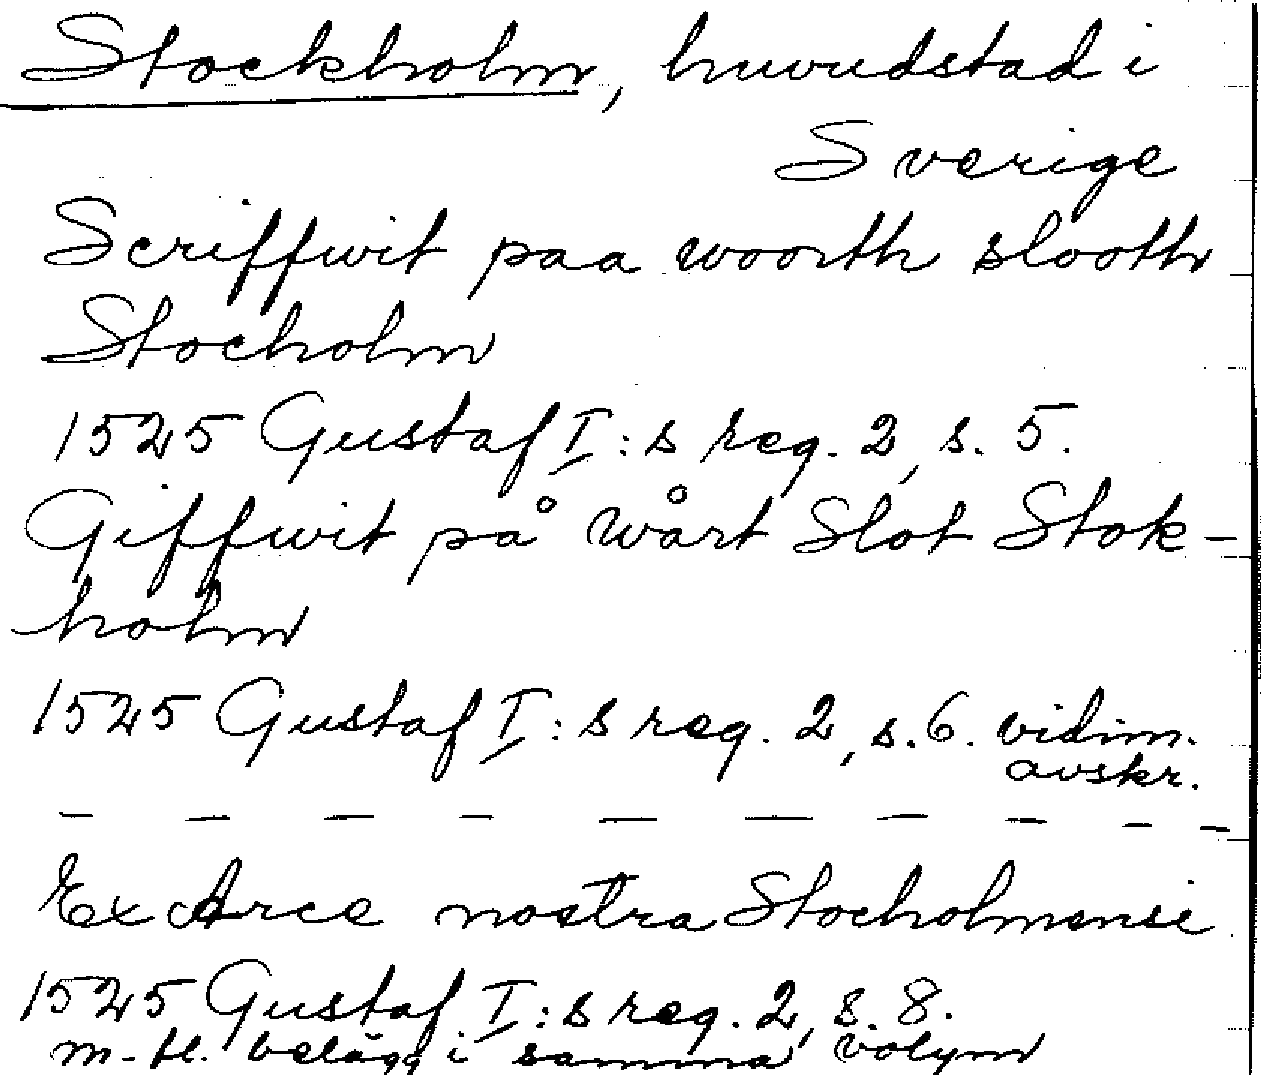 Stockholm, huvudstad i
Sverige
Scriffwit paa woorth slooth
Stocholm
1525 Gustaf I:s reg. 2, s. 5.
Giffwit på wårt Slot Stok-
holm
1525 Gustaf I:s reg. 2, s. 6. vidim.
avskr.
Ex Arce nostra Stocholmensi
1525 Gustaf I:s reg. 2, s. 8.
m. fl. belägg i samma volym